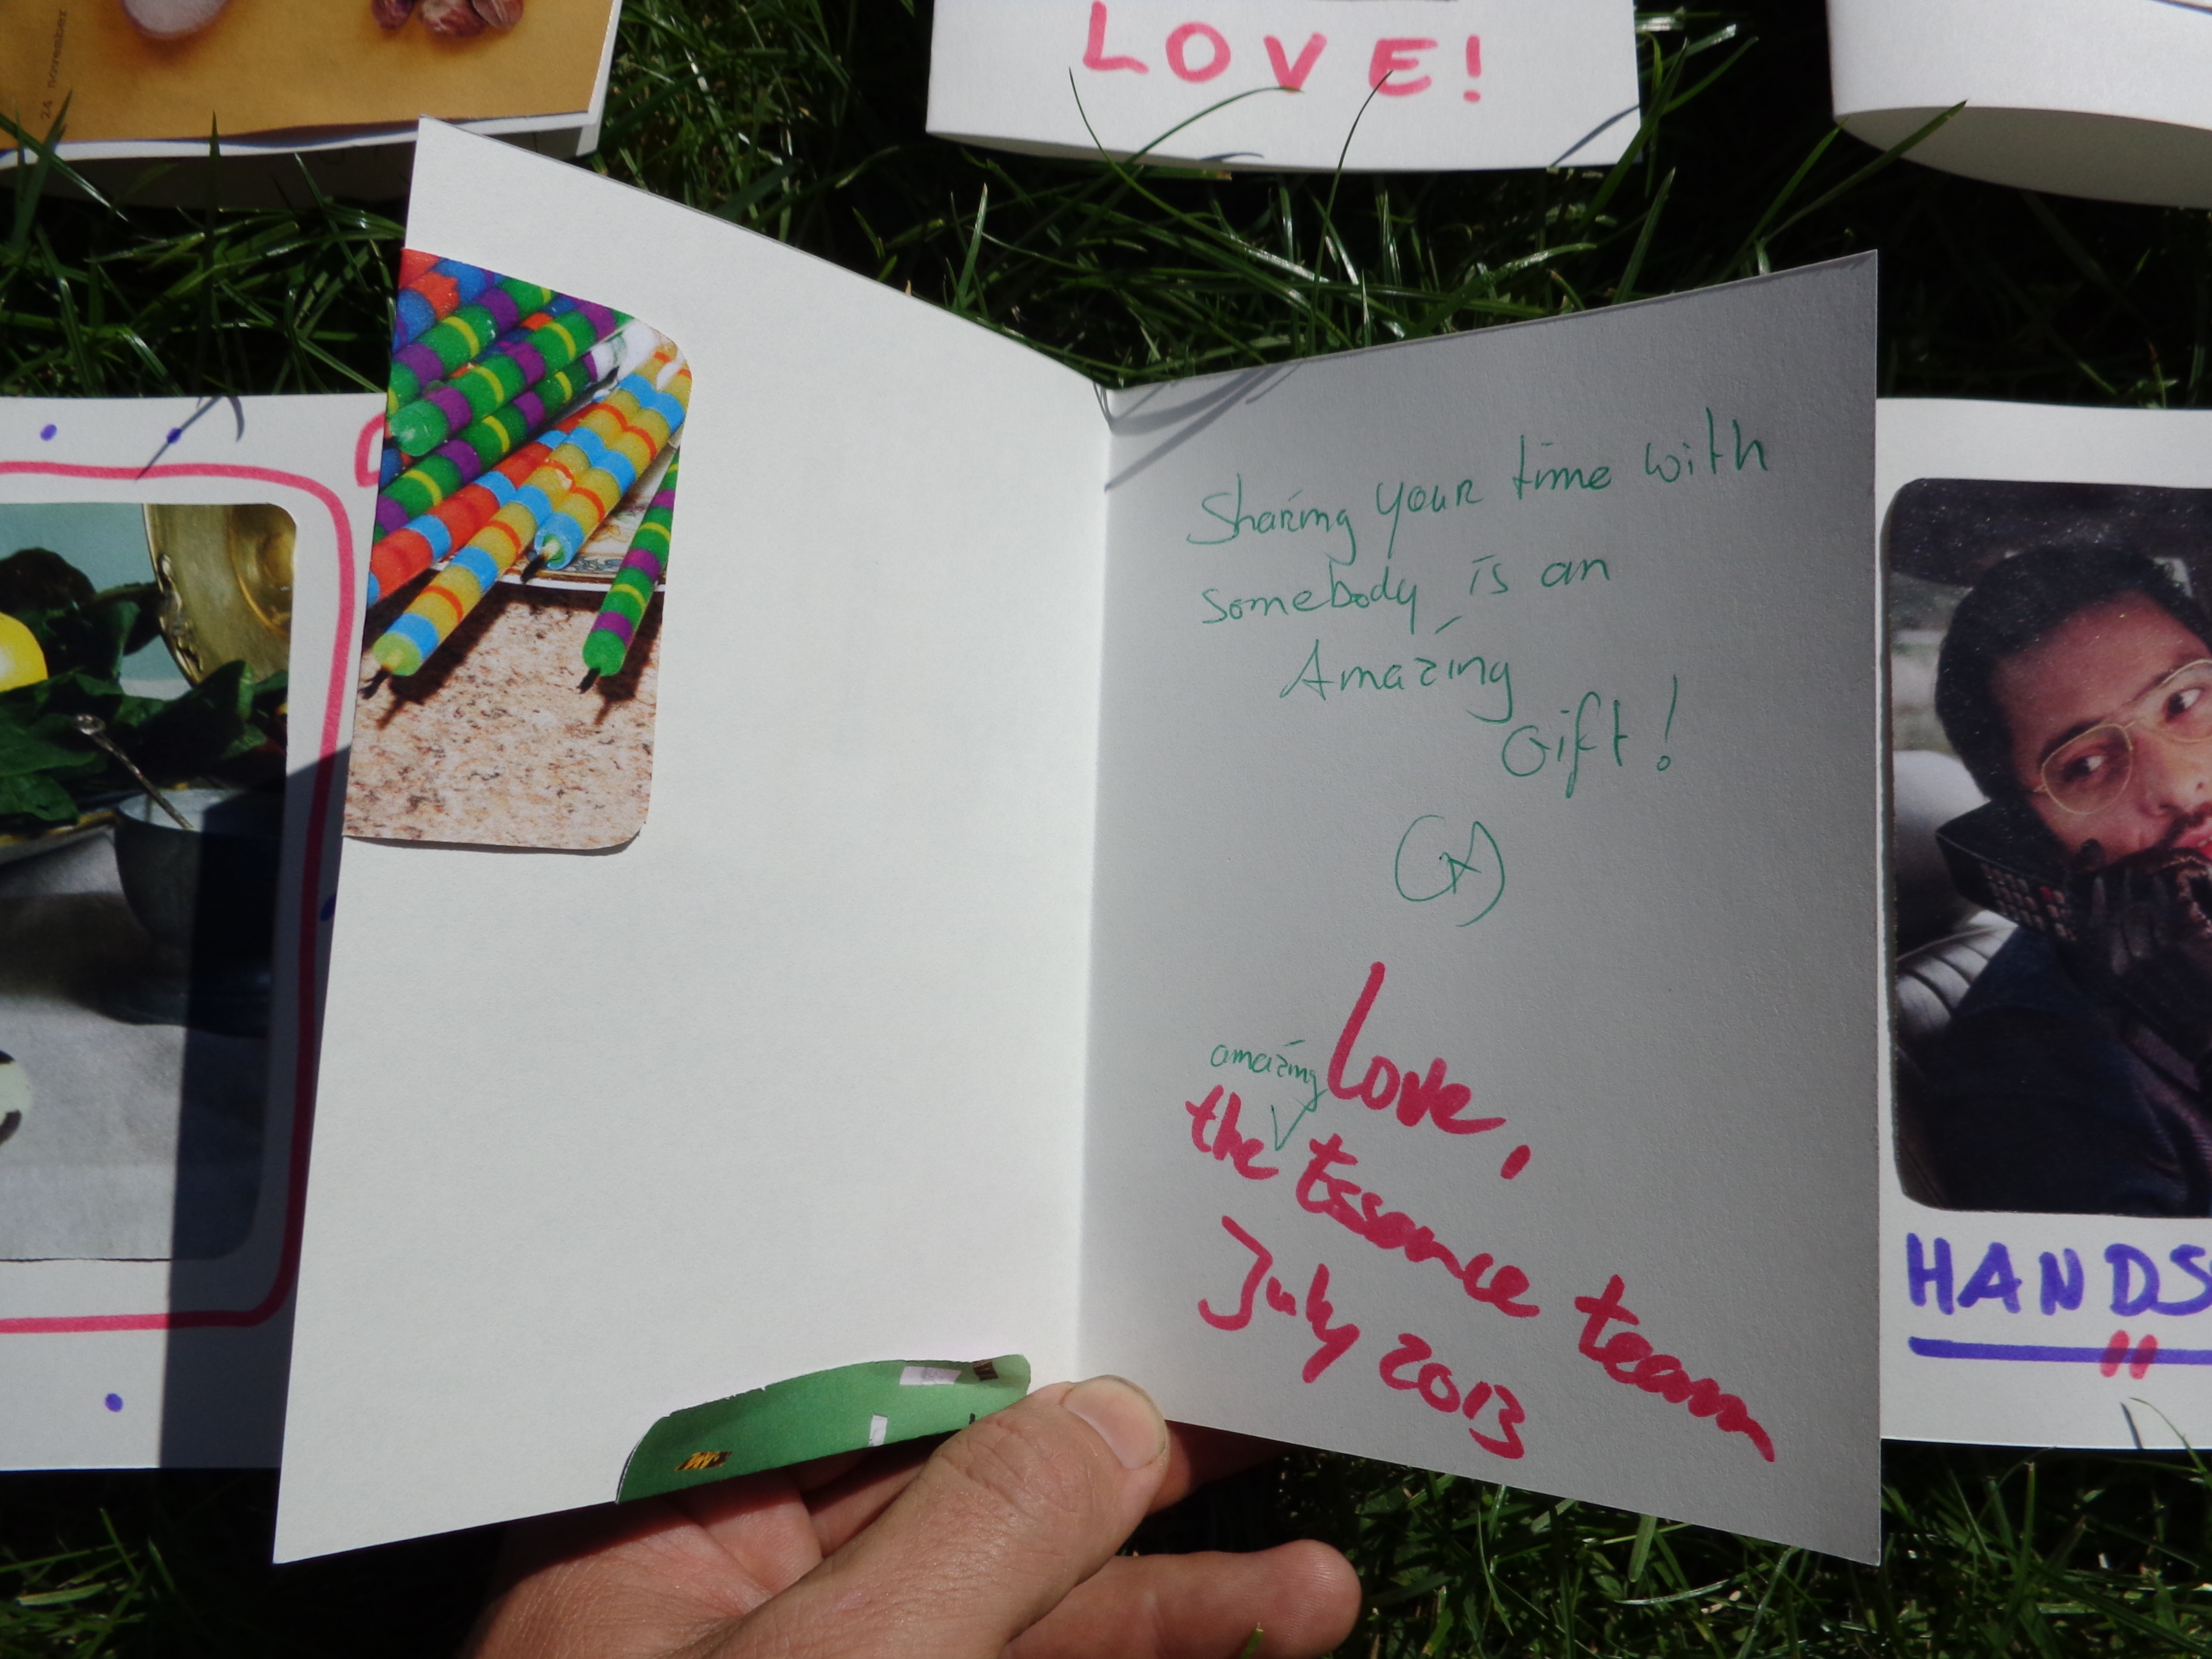 24 november
LOVE!
Sharing your time with
somebody is an
Amazing
Gift!
Love,
amazing
the Essence team
July 2013
HANDS